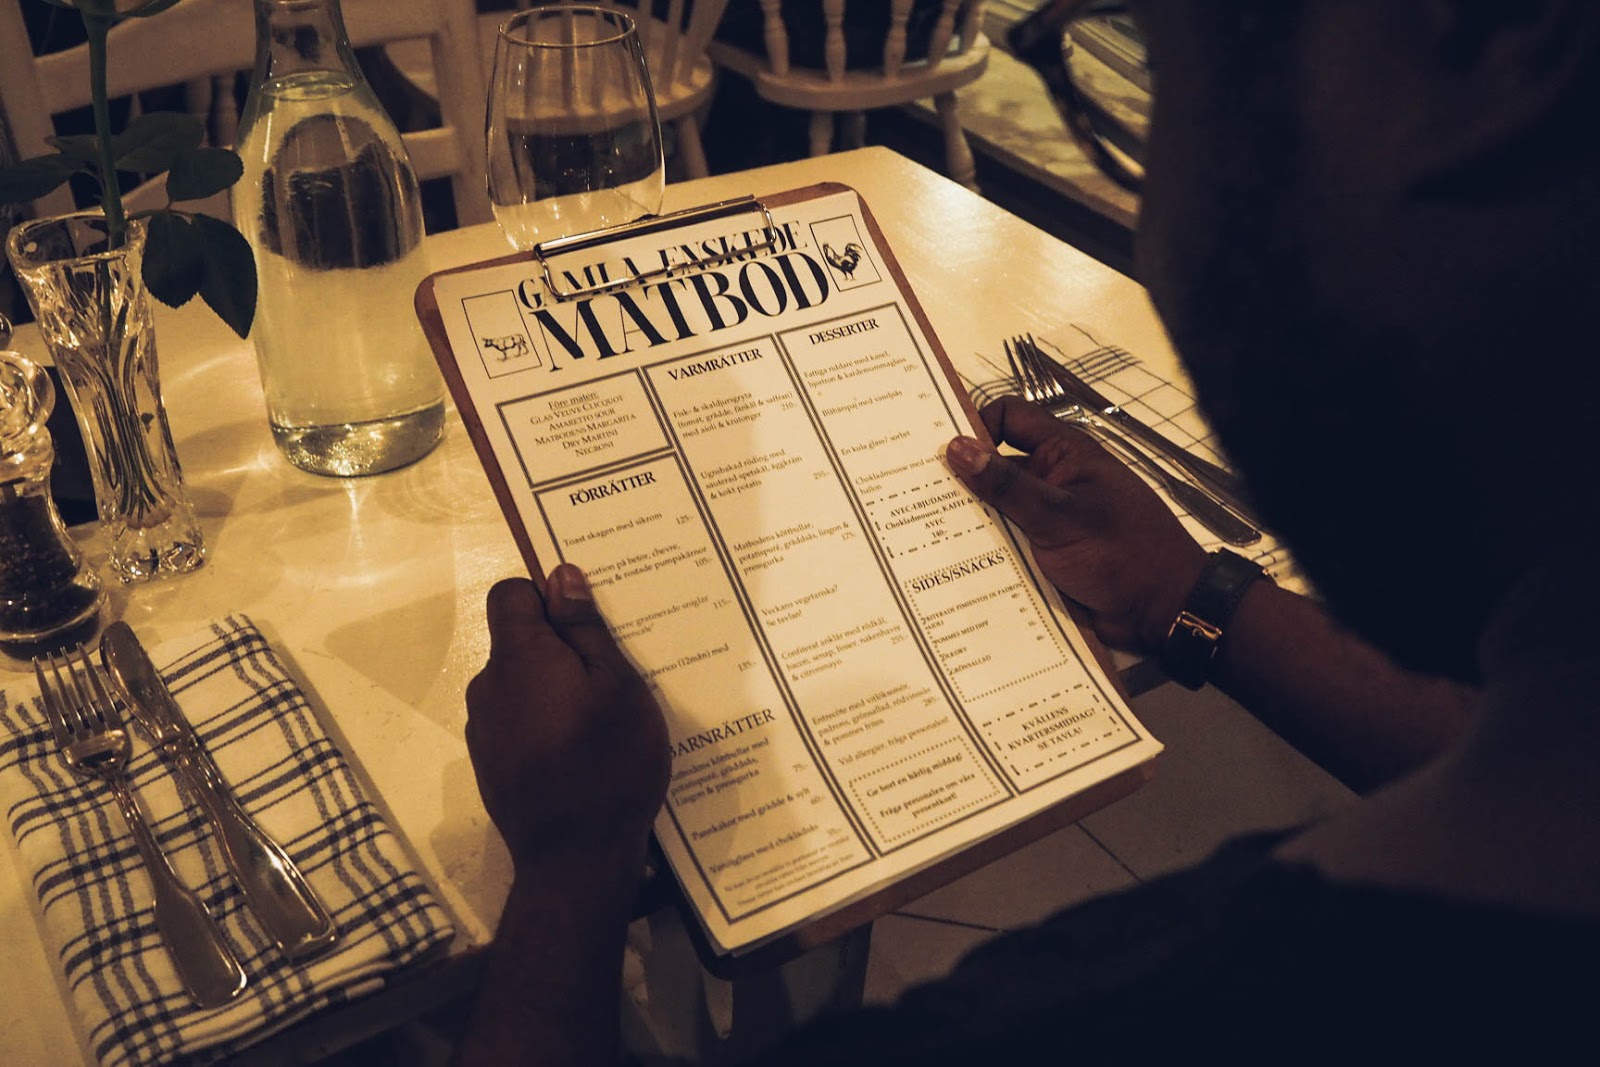 GAMLA ENSKEDE
MATBOD
Före maten:
GLAS VEUVE CLICQUOT
AMARETTO SOUR
MATBODENS MARGARITA
DRY MARTINI
NEGRONI
FÖRRÄTTER
Toast skagen med sikrom 125:-
på betor, chevre,
& rostade pumpakärnor
105:-
gratinerade sniglar
115:-
(12mån) med
135:-
BARNRÄTTER
Matbodens köttbullar med
potatispuré, gräddsås, 75:-
Lingon & pressgurka
Pannkakor med grädde & sylt
60:-
Vaniljglass med chokladsås
35:-
VARMRÄTTER
Fisk- & skaldjursgryta
(tomat, grädde, fänkål & saffran)
med aioli & krutonger 210:-
Ugnsbakad röding med
sauterad spetskål, äggkräm
& kokt potatis 255:-
Matbodens köttbullar,
potatispuré, gräddsås, lingon &
pressgurka 175:-
Veckans vegetariska?
Se tavlan!
Confiterat anklår med rödkål,
bacon, senap, linser, rukenhavre
& citronmayo 255:-
Entrecôte med vitlökssmör,
padrons, grönsallad, rödvinssås
& pommes frites 285:-
Vid allergier, fråga personalen!
Ge bort en härlig middag!
Fråga personalen om våra
presentkort!
DESSERTER
Fattiga riddare med kanel,
hjortron & kardemummaglass
105:-
Blåbärspaj med vaniljsås
95:-
En kula glass/ sorbet 30:-
Chokladmousse med
hallon
AVEC-ERJUDANDE:
Chokladmousse, KAFFE &
AVEC
140:-
SIDES/SNACKS
PIMIENTOS DE PADRON
POMMES MED DIPP
GRÖNSALLAD
KVÄLLENS
KVARTERSMIDDAG?
SE TAVLA!